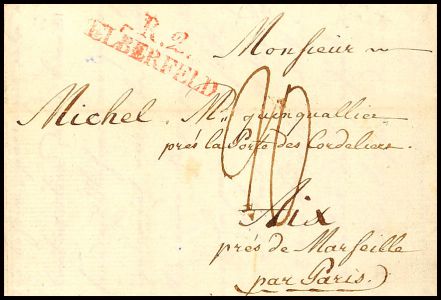 R. 2.
ELBERFELD
Monsieur
Michel. Md. quinquallier
prés la Porte des Cordeliers.
Aix
prés de Marseille
par Paris.